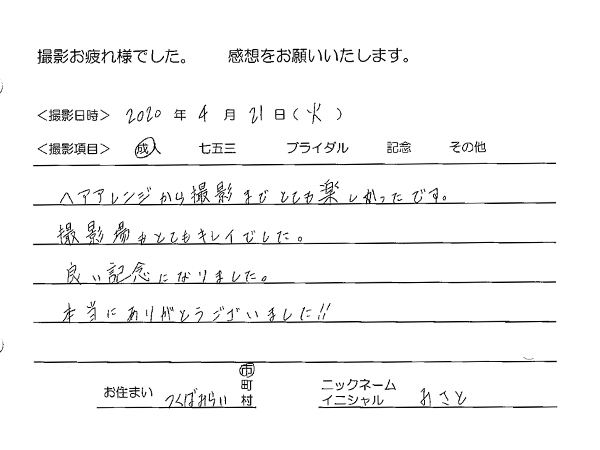 撮影お疲れ様でした。 感想をお願いいたします。
＜撮影日時＞ 2020 年 4 月 21 日 ( 火 )
＜撮影項目＞ 成人 七五三 ブライダル 記念 その他
ヘアアレンジから撮影までとても楽しかったです。
撮影場もとてもキレイでした。
良い記念になりました。
本当にありがとうございました!!
お住まい つくばみらい 市 町 村
ニックネーム イニシャル みさと